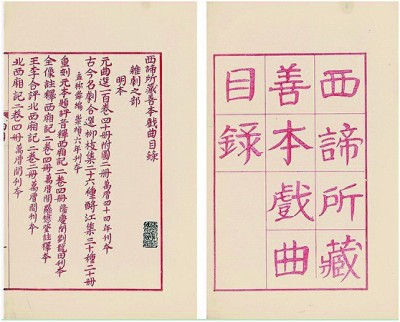 西諦所藏
善本戲曲
目錄
西諦所藏善本戲曲目錄
雜劇之部
明本
元曲選一百卷四十冊附圖二冊萬曆四十四年刊本
古今名劇合選柳枝集二十六種酹江集三十種二十冊
孟稱舜編 崇禎六年刊本
重刻元本題評音釋西廂記二卷四冊萬曆間劉龍田刊本
全像註釋西廂記二卷四冊萬曆間羅懋登註釋本
王李合評北西廂記二卷二冊萬曆間刊本
北西廂記二卷四冊萬曆間刊本